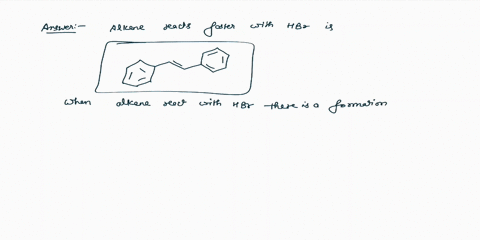 Answer:- Alkene reacts faster with HBr is
When alkene react with HBr there is a formation